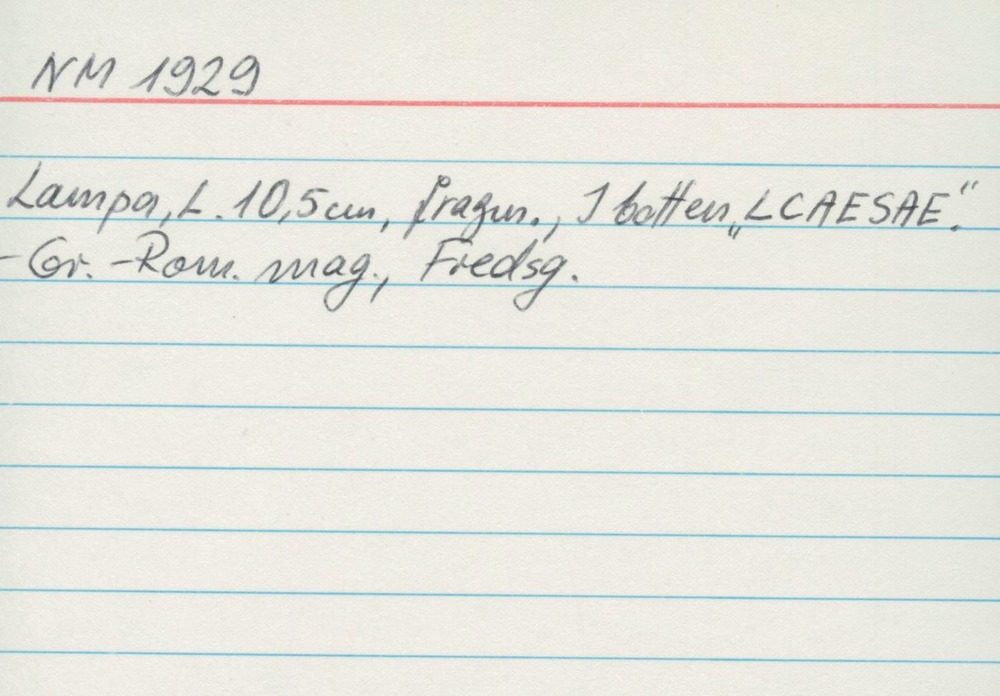 NM 1929
Lampa, L. 10,5 cm, fragm., I botten „LCAESAE.“
- Gr. - Rom. mag., Fredsg.